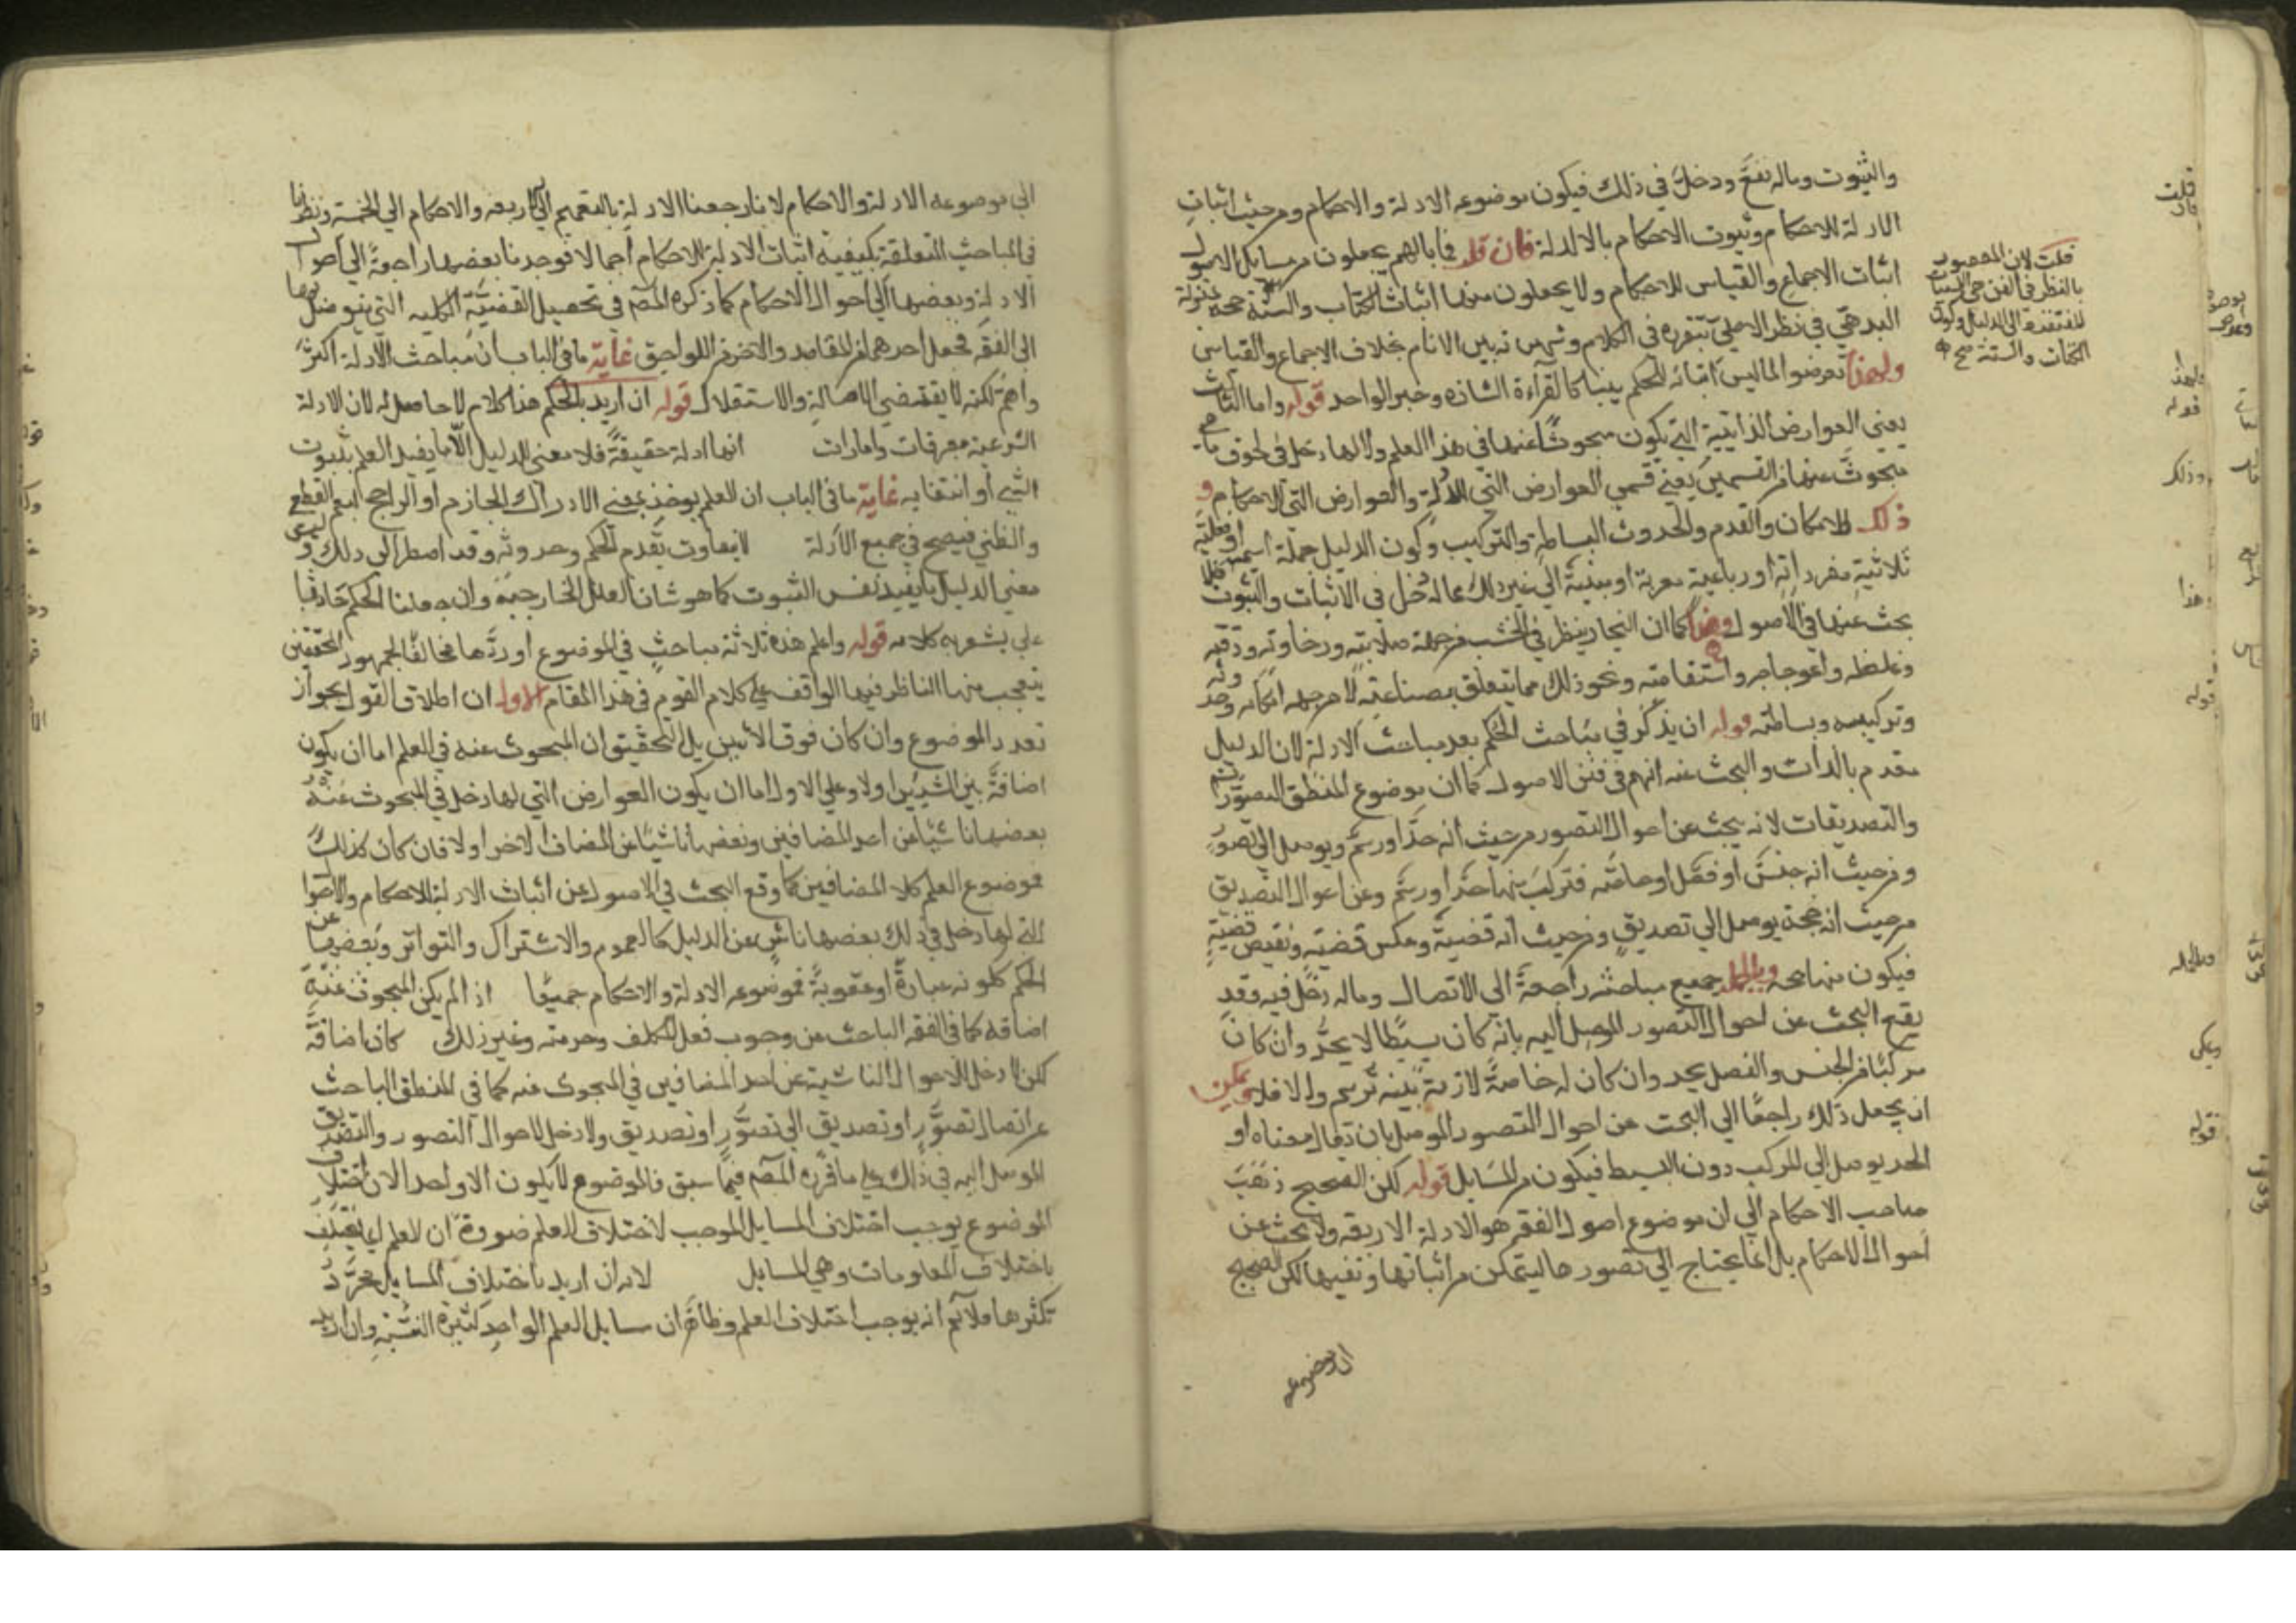 والثبوت وماله نفع ودخل في ذلك فيكون موضوعه الادلة والاحكام ومن حيث اثبات
الادلة للاحكام وثبوت الاحكام بالادلة فان قلت فما بالهم يجعلون من مسايل الاصول
اثبات الاجماع والقياس للاحكام ولا يجعلون منها اثبات الكتاب والسنة حجة بمنزلة
قلت لان المقصود
بالنظر في الفن هي الكسبيات
المفتقرة الى الدليل وكون
الكتاب والسنة صح
البدهي في نظر الاصلي لتقرره في الكلام وشهرته بين الانام بخلاف الاجماع والقياس
ولهذا تعرضوا لما ليس اثباته للحكم بينا كالقرآءة الشاذه وخبر الواحد قوله واما الثالث
يعني العوارض الذاتية التي يكون مبحوثا عنها في هذا العلم ولا لها دخل في لحوق ما هي
مبحوث عنها من القسمين يعني قسمي العوارض التي للادلة والعوارض التي للاحكام و
ذلك كالامكان والقدم والحدوث البساطة والتركيب وكون الدليل جملة اسمية او فعلية
ثلاثية مفرداته او رباعية معربة او مبنية الي غير ذلك مما لا دخل في الاثبات والثبوت فلا
بحث عنها في الاصول وهذا كما ان النجار ينظر في الخشب من جهة صلابته ورخاوته ورقته
وغلظه واعوجاجه واستقامته ونحو ذلك مما يتعلق بصناعته لا من جهة امكانه وحدوثه
وتركيبه وبساطته قوله ان يذكر في مباحث الحكم بعد مباحث الادلة لان الدليل
مقدم بالذات والبحث عنه اهم في فن الاصول كما ان موضوع المنطق التصورات
والتصديقات لانه يبحث عن احوال التصور من حيث انه حد او رسم ويوصل الى تصور
ومن حيث انه جنس او فصل او خاصه فتركب منها حد او رسم وعن احوال التصديق
من حيث انه حجة يوصل الي تصديق ومن حيث انه قضية وعكس قضية ونقيض قضية
فيكون منها حجة وبالجملة جميع مباحثه راجعة الي الاتصال وماله دخل فيه وقد
يقع البحث عن احوال التصور الموصل اليه بانه كان بسيطا لا يحد وان كان
مركبا من الجنس والفصل يحد وان كان له خاصة لازمة بينه ترسم والا فلا ويمكن
ان يجعل ذلك راجعا الي البحث عن احوال التصور الموصل بان يقال معناه او
الحد يوصل الي المركب دون البسيط فيكون من المسايل قوله لكن الصحيح ذهب
صاحب الاحكام الي ان موضوع اصول الفقه هو الادلة الاربعة ولا يبحث عن
احوال الاحكام بل انما يحتاج الي تصورها ليتمكن من اثباتها ونفيها لكن الصحيح
ان موضوعه
الى موضوعه الادلة والاحكام لانا رجعنا الادلة بالتعميم الي الاربعه والاحكام الي الخمسة ونظرنا
في المباحث المتعلقة بكيفية اثبات الادلة للاحكام اجمالا فوجدنا بعضها راجعة الي احوال
الادلة وبعضها الي احوال الاحكام كما ذكره المصم في تحصيل القضية الكليه التي يتوصل بها
الى الفقه فجعل احدهما من المقاصد والاخر من اللواحق غاية ما في الباب ان مباحث الادلة اكثر
واهم لكنه لا يقتضي الاصالة والاستقلال قوله ان اريد بالحكم هذا كلام لا حاصل له لان الادلة
الشرعية معرفات وامارات انها ادلة حقيقة فلا معنى للدليل الا ما يفيد العلم بثبوت
الشي او انتفايه غاية ما في الباب ان العلم يوخذ بمعنى الادراك الجازم او الراجح ليعم القطع
والظني فيصح في جميع الادلة لا يتفاوت بقدم الحكم وحدوثه وقد اضطر الى ذلك وليس
معني الدليل ما يفيد نفس الثبوت كما هو شان العلل الخارجية وان جعلنا الحكم حادثا
علي يشعر به كلامه قوله واعلم هذه ثلاثة مباحث في الموضوع اوردها مخالفا لجمهور المحققين
يتعجب منها الناظر فيها الواقف علي كلام القوم في هذا المقام الاول ان اطلاق القول بجواز
تعدد الموضوع وان كان فوق الاثنين بل التحقيق ان المبحوث عنه في العلم اما ان يكون
اضافة بين الشيئين اولا وعلي الاول اما ان يكون العوارض التي لها دخل في المبحوث عنه
بعضها ناشيا عن احد المضافين وبعضها ناشيا عن المضاف الاخر اولا فان كان كذلك
فموضوع العلم كلا المضافين كما وقع البحث في الاصول عن اثبات الادلة للاحكام والاحوال
التي لها دخل في ذلك بعضها ناش عن الدليل كالعموم والاشتراك والتواتر وبعضها عن
الحكم كلونه عبادة او عقوبة فموضوعه الادلة والاحكام جميعا اذ الم يكن المبحوث عنه
اضافه كما في الفقه الباحث من وجوب فعل المكلف وحرمته وغير ذلك كان اضافة
لكن لا دخل للاحوال الناشية عن احد المضافين في المبحوث عنه كما في المنطق الباحث
عن اتصال تصور او تصديق الي تصور او تصديق ولا دخل لاحوال التصور والتصديق
الموصل اليه في ذلك علي ما قرره المصم فيما سبق فالموضوع لا يكون الا واحدا لان اختلاف
الموضوع يوجب اختلاف المسايل الموجب لاختلاف العلم ضرورة ان العلم انما يختلف
باختلاف المعلومات وهي المسايل لانه ان اريد باختلاف المسايل مجرد
تكثرها فلا نم انه يوجب اختلاف العلم وظاهر ان مسايل العلم الواحد كثيرة البتة وان اريد